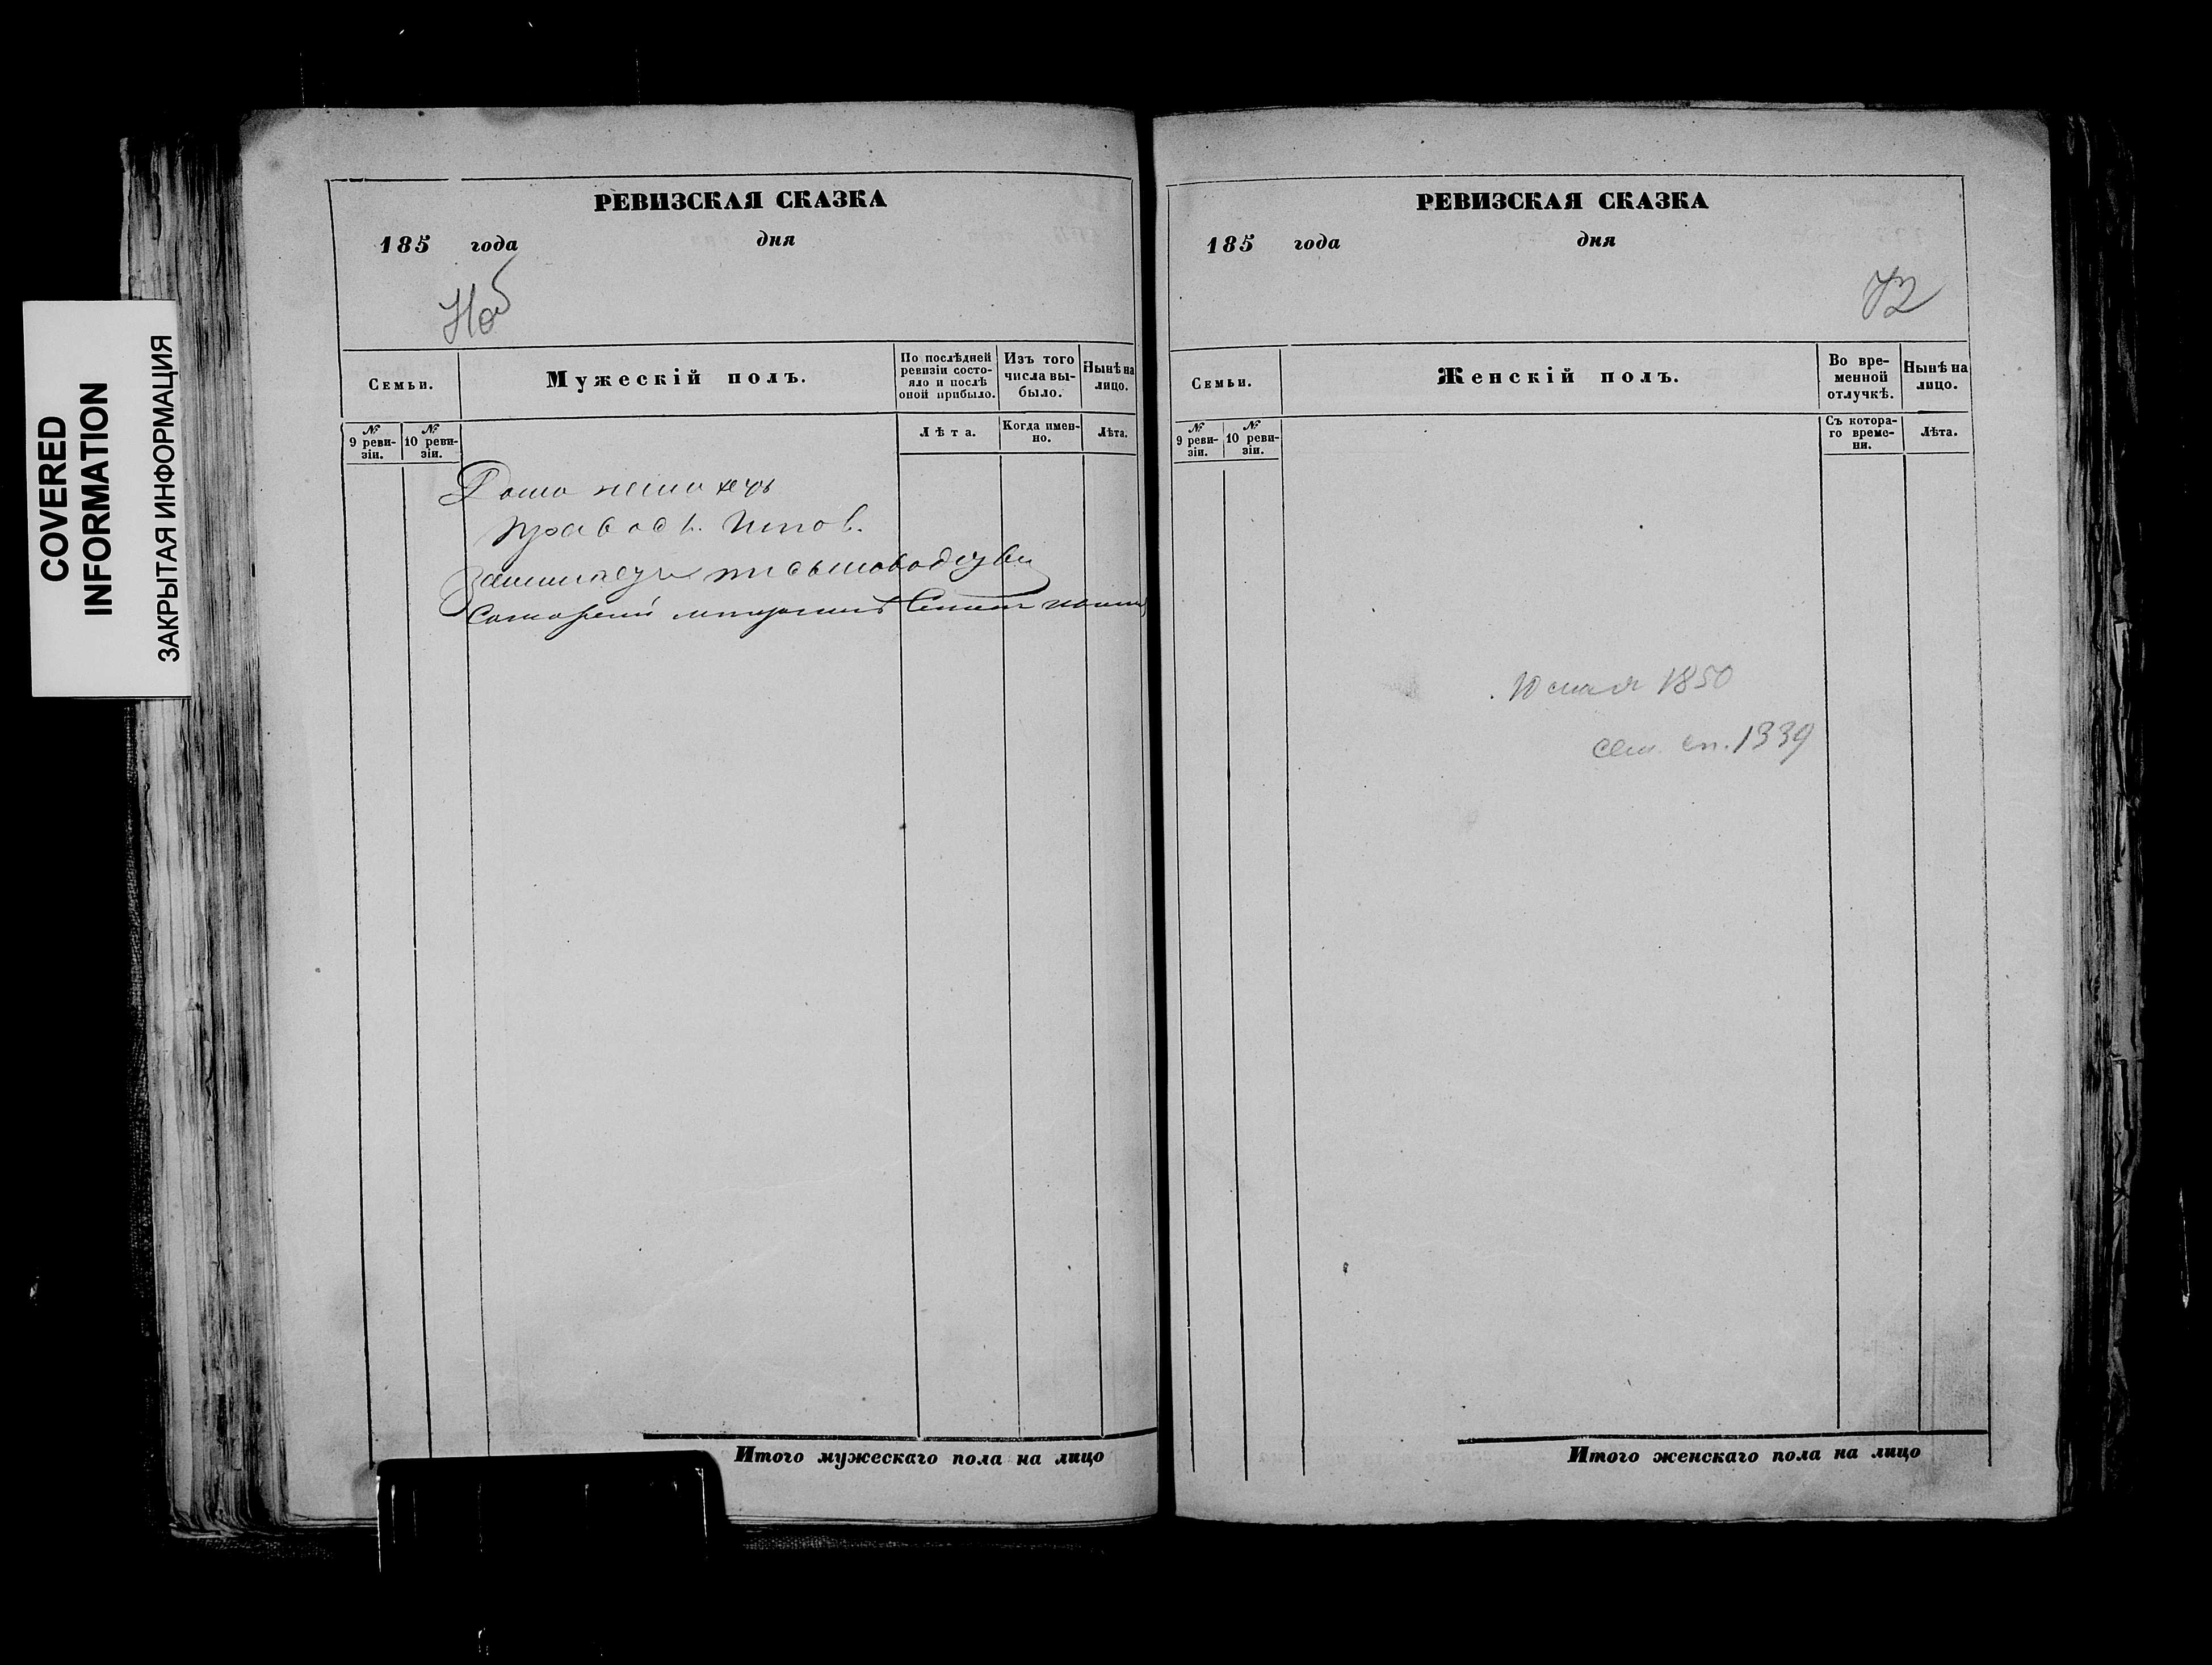 COVERED
INFORMATION
ЗАКРЫТАЯ ИНФОРМАЦИЯ
РЕВИЗСКАЯ СКАЗКА
185 года дня
Семьи.
Мужескій полъ.
По послѣдней
ревизіи состо-
яло и послѣ
оной прибыло.
Изъ того
числа вы-
было.
Нынѣ на
лицо.
№
9 реви-
зіи.
№
10 реви-
зіи.
Лѣта.
Когда имен-
но.
Лѣта.
Итого мужескаго пола на лицо
РЕВИЗСКАЯ СКАЗКА
185 года дня
72
Семьи.
Женскій полъ.
Во вре-
менной
отлучкѣ.
Нынѣ на
лицо.
№
9 реви-
зіи.
№
10 реви-
зіи.
Съ котора-
го време-
ни.
Лѣта.
1850
сем. сп. 1339
Итого женскаго пола на лицо